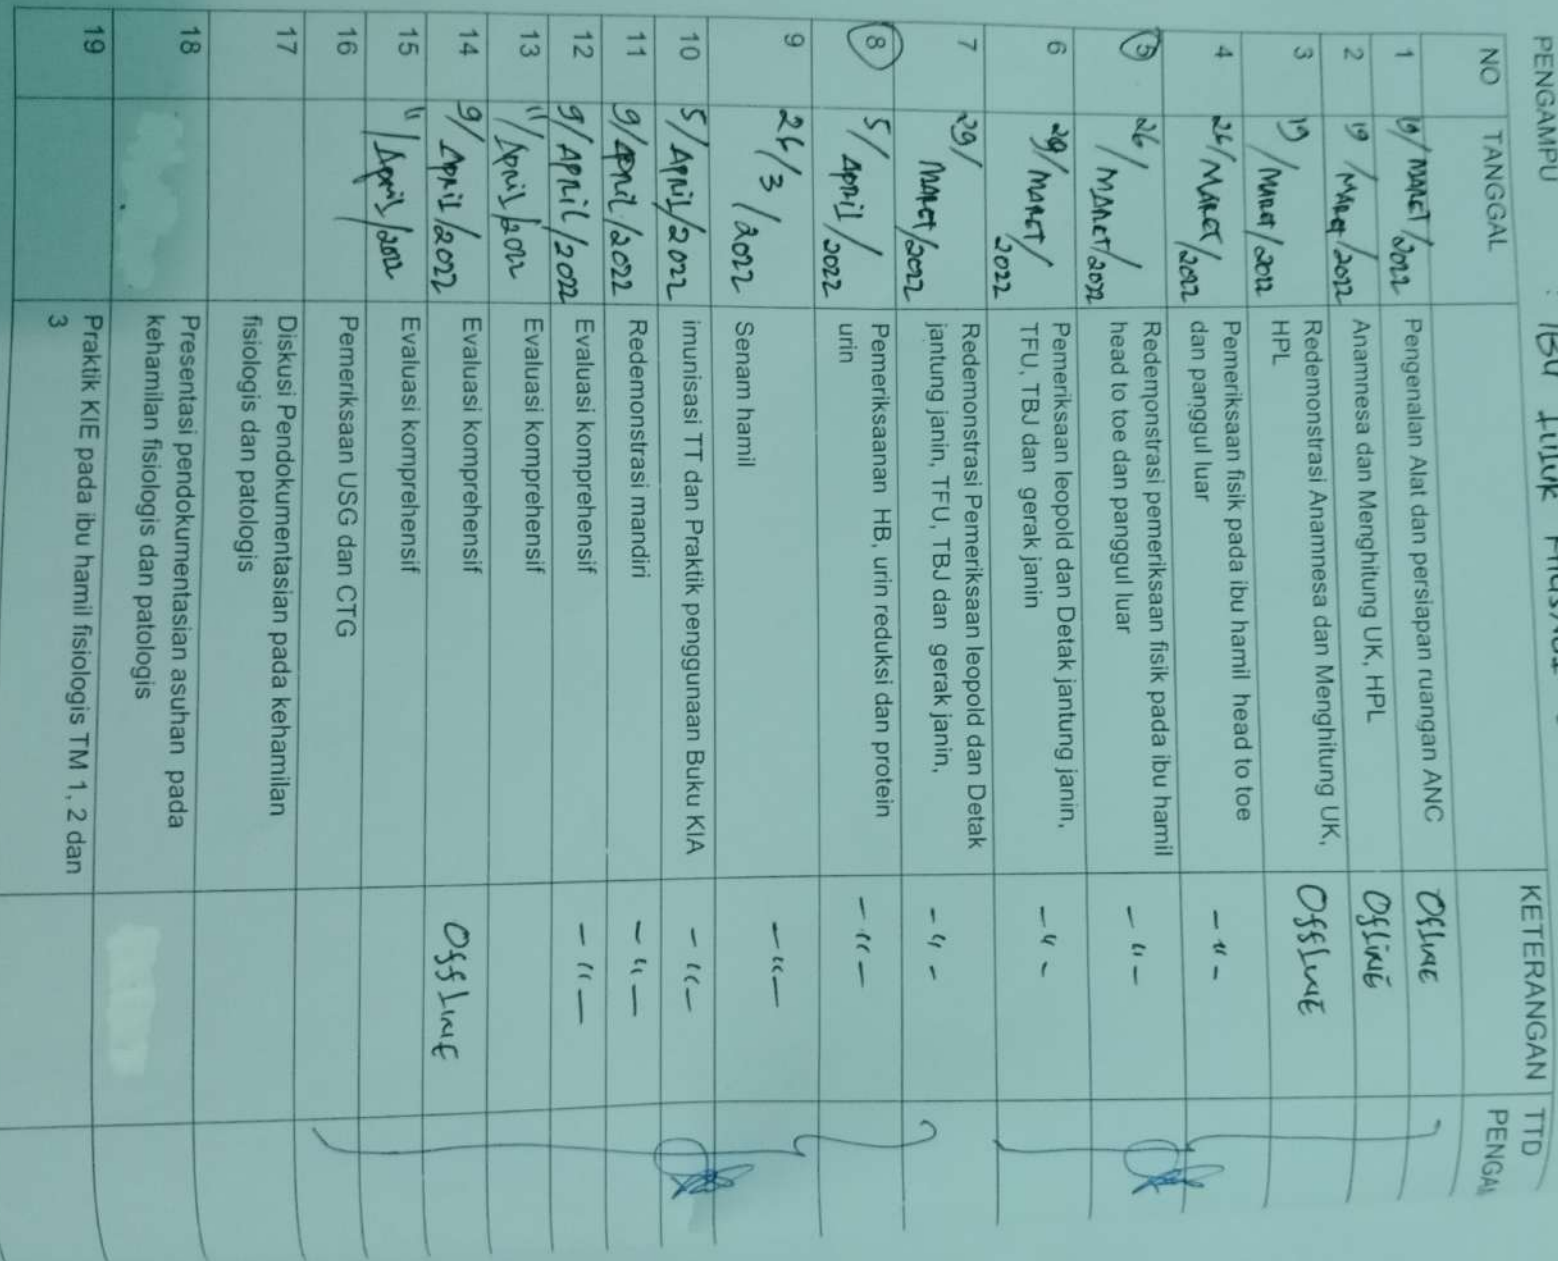 PENGAMPU : IBU LULUK
NO TANGGAL KETERANGAN TTD
PENGA
1 19/MARET/2022 Pengenalan Alat dan persiapan ruangan ANC OfLINE
2 19/MARET/2022 Anamnesa dan Menghitung UK, HPL OfLiNE
3 19/MARET/2022 Redemonstrasi Anamnesa dan Menghitung UK,
HPL OffLINE
4 26/MARET/2022 Pemeriksaan fisik pada ibu hamil head to toe
dan panggul luar -"-
5 26/MARET/2022 Redemonstrasi pemeriksaan fisik pada ibu hamil
head to toe dan panggul luar -"-
6 29/MARET/
2022 Pemeriksaan leopold dan Detak jantung janin,
TFU, TBJ dan gerak janin -"-
7 29/
MARET/2022 Redemonstrasi Pemeriksaan leopold dan Detak
jantung janin, TFU, TBJ dan gerak janin, -"-
8 5/April/
2022 Pemeriksaanan HB, urin reduksi dan protein
urin -"-
9 26/3/2022 Senam hamil -"-
10 5/April/2022 imunisasi TT dan Praktik penggunaan Buku KIA -"-
11 9/April/2022 Redemonstrasi mandiri -"-
12 9/APRIL/2022 Evaluasi komprehensif -"-
13 11/April/2022 Evaluasi komprehensif
14 9/April/2022 Evaluasi komprehensif OffLINE
15 11/April/2022 Evaluasi komprehensif
16 Pemeriksaan USG dan CTG
17 Diskusi Pendokumentasian pada kehamilan
fisiologis dan patologis
18 Presentasi pendokumentasian asuhan pada
kehamilan fisiologis dan patologis
19 Praktik KIE pada ibu hamil fisiologis TM 1, 2 dan
3